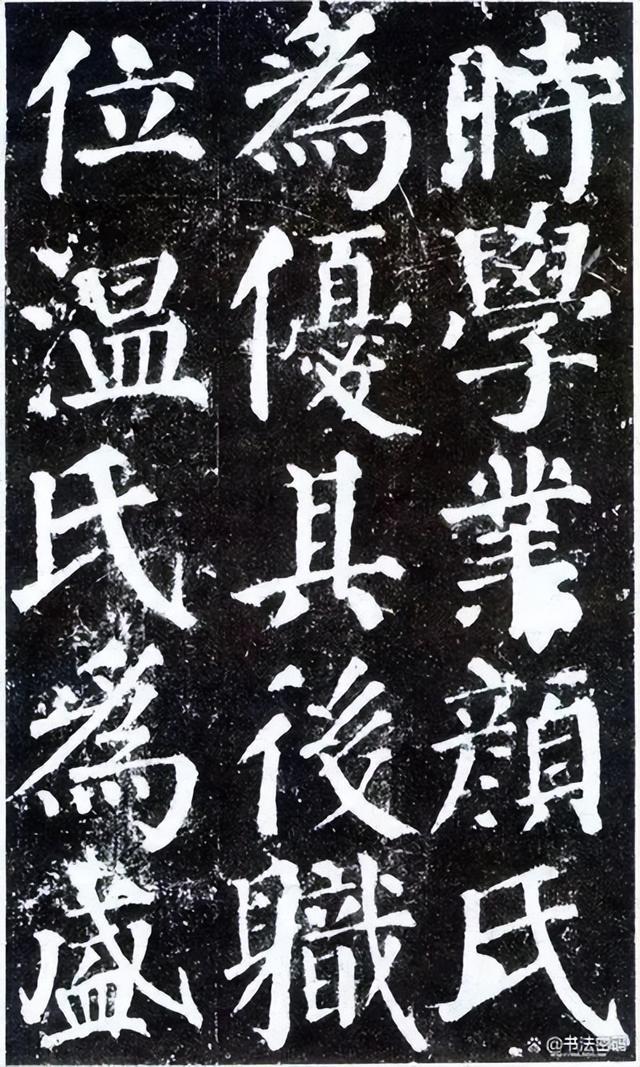 時學業顏氏
為優其後職
位温氏為盛
@书法密码